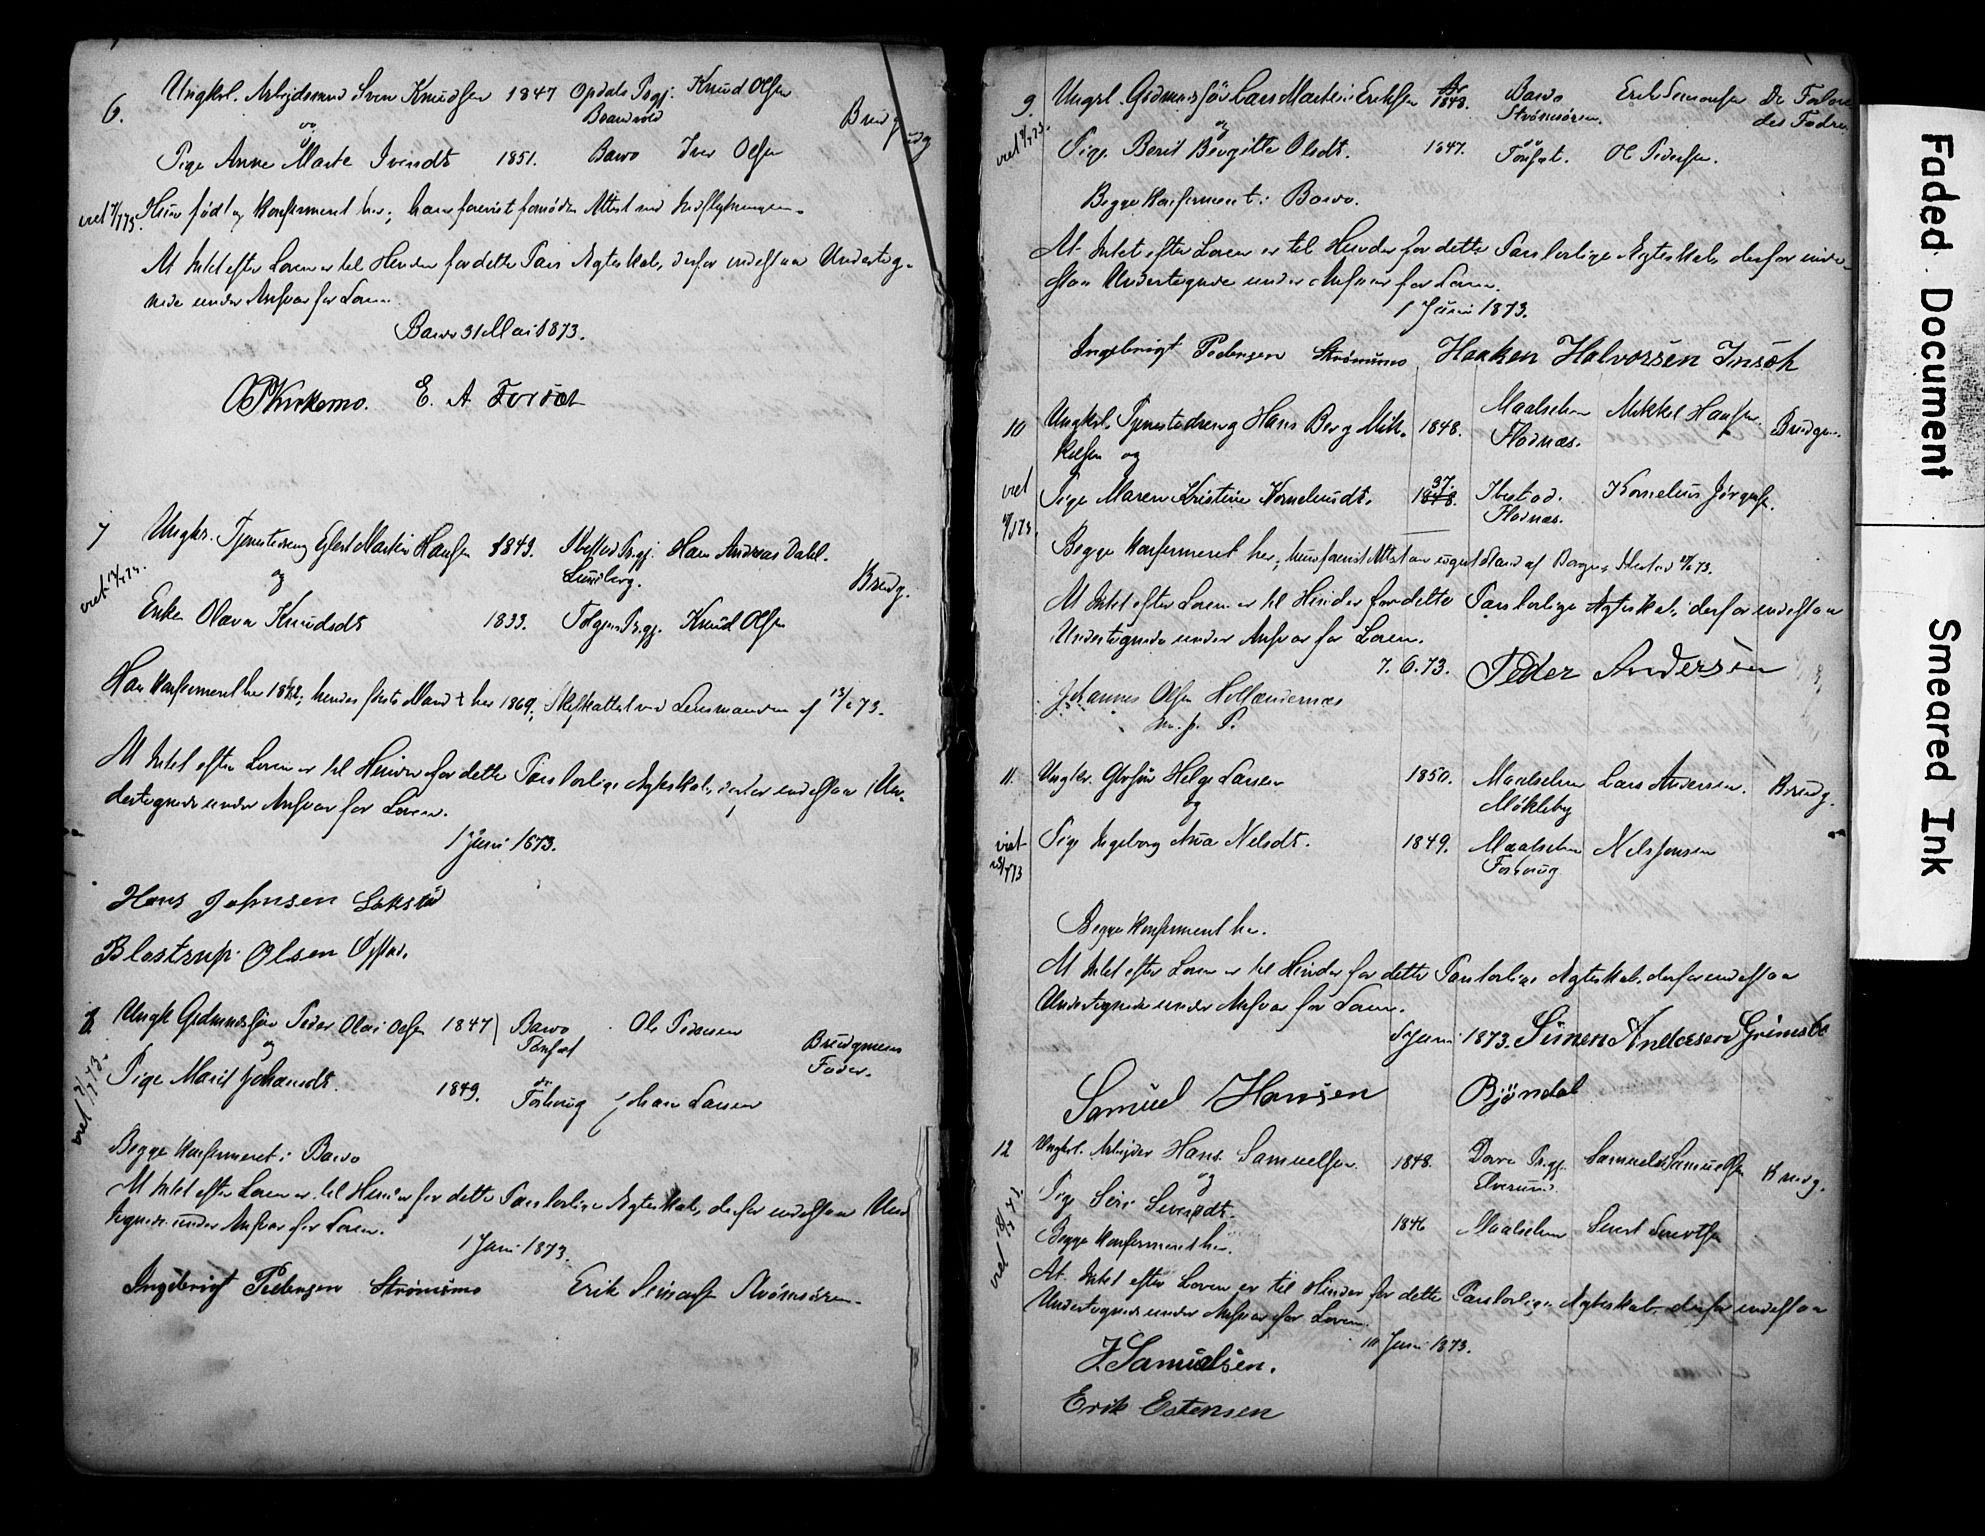 6.
Ungkrl. Arbeidsmand Sven Knudsen 1847 Opdals Prgj. Knud Olsen
Brandvold
og
Brudg
Pige Anne Marte Iversdt 1851. Bardo Iver Olsen
Hun født og konfirmeret her; han forevist fornøden Attest ved Indflytningen.
At Intet efter Loven er til Hinder for dette Pars Ægteskab, derfor indestaa Underteg-
nede under Ansvar for Loven.
Bardo 31 Mai 1873.
OP Kirkemo. E. A. Forsæt
7
Ungkr. Tjenestedreng Eilert Martin Hansen 1843. Ibestad Prgj. Hans Andreas Dahl.
og
Brudg.
Enke Olava Knudsdt 1833. Tolgens Prgj. Knud Olsen
Han konfirmeret her; hendes første Mand † her 1869; Skifteattest ved Lensmanden af 13/6 73.
At Intet efter Loven er til Hinder for dette Pars lovlige Ægteskab, derfor indestaa Un-
dertegnede under Ansvar for Loven.
1 Juni 1873.
Hans Johnsen
Blostrup Olsen
8.
Ungk Gdmandssøn Peder Olai Olsen 1847 Bardo Ole Pedersen
og
Brudgmens
Fader.
Pige Marit Johansdt. 1849. Johan Larsen
Begge konfirmeret i Bardo
At Intet efter Loven er til Hinder for dette Pars lovlige Ægteskab, derfor indestaa Under
tegnede under Ansvar for Loven.
1 Juni 1873.
Ingebrigt Pedersen Strømsmo Erik Simonsen Strømsøren.
9.
Ungkl. Gdmandssøn Lars Martin Eriksen 1848. Bardo Erik Simonsen De Forlove
Strømsøren. des Fædre
og
Pige Berit Birgitte Olsdt. 1847. Ole Pedersen.
Begge konfirmeret i Bardo.
At Intet efter Loven er til Hinder for dette Pars lovlige Ægteskab, derfor inde-
staa Undertegnede under Ansvar for Loven.
1 Juni 1873.
Ingebrigt Pedersen Strømsmo Haaken Halvorssen Insæt
10
Ungkrl. Tjenestedreng Hans Berg Mik- 1848. Maalselven Mikkel Hansen. Brudgm.
kelsen og
Pige Maren Kristine Kornelusdt. 37. Ibestad. Kornelius Jørgensen.
Begge konfirmeret her;
At Intet efter Loven er til Hinder for dette Pars lovlige Ægteskab, derfor indestaa
Undertegnede under Ansvar for Loven.
7. 6. 73. Peder Andersen
Johannes Olsen Hollændernæs
m. p. P.
11.
Ungkr. Helge Larsen 1850. Maalselven Lars Andersen. Brudg.
Møkleby
og
Pige Ingeborg Ana Nelsdt. 1849. Maalselven Nels Jensen
Foshoug
Begge konfirmeret her.
At Intet efter Loven er til Hinder for dette Pars lovlige Ægteskab, derfor indestaa
Undertegnede under Ansvar for Loven.
Juni 1873. Simen Andersen
Samuel Hansen Bjøndal
12
Ungkrl. Arbeider Hans Samuelsen. 1848. Samuel Samuelsen Brudg.
Elverum
og
Pige Siri Sivertsdt. 1846 Maalselven Sivert Sivertsen
Begge konfirmeret her.
At Intet efter Loven er til Hinder for dette Pars lovlige Ægteskab, derfor indestaa
Undertegnede under Ansvar for Loven.
10 Juni 1873.
J. Samuelsen.
Erik Estensen
Faded Document
Smeared Ink